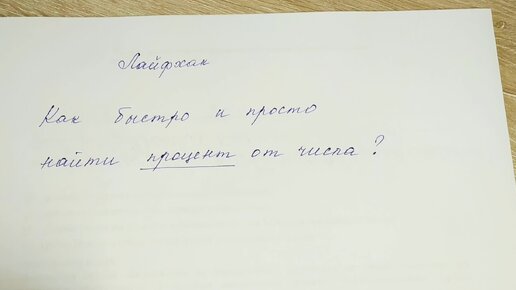 Лайфхак
Как быстро и просто
найти процент от числа?